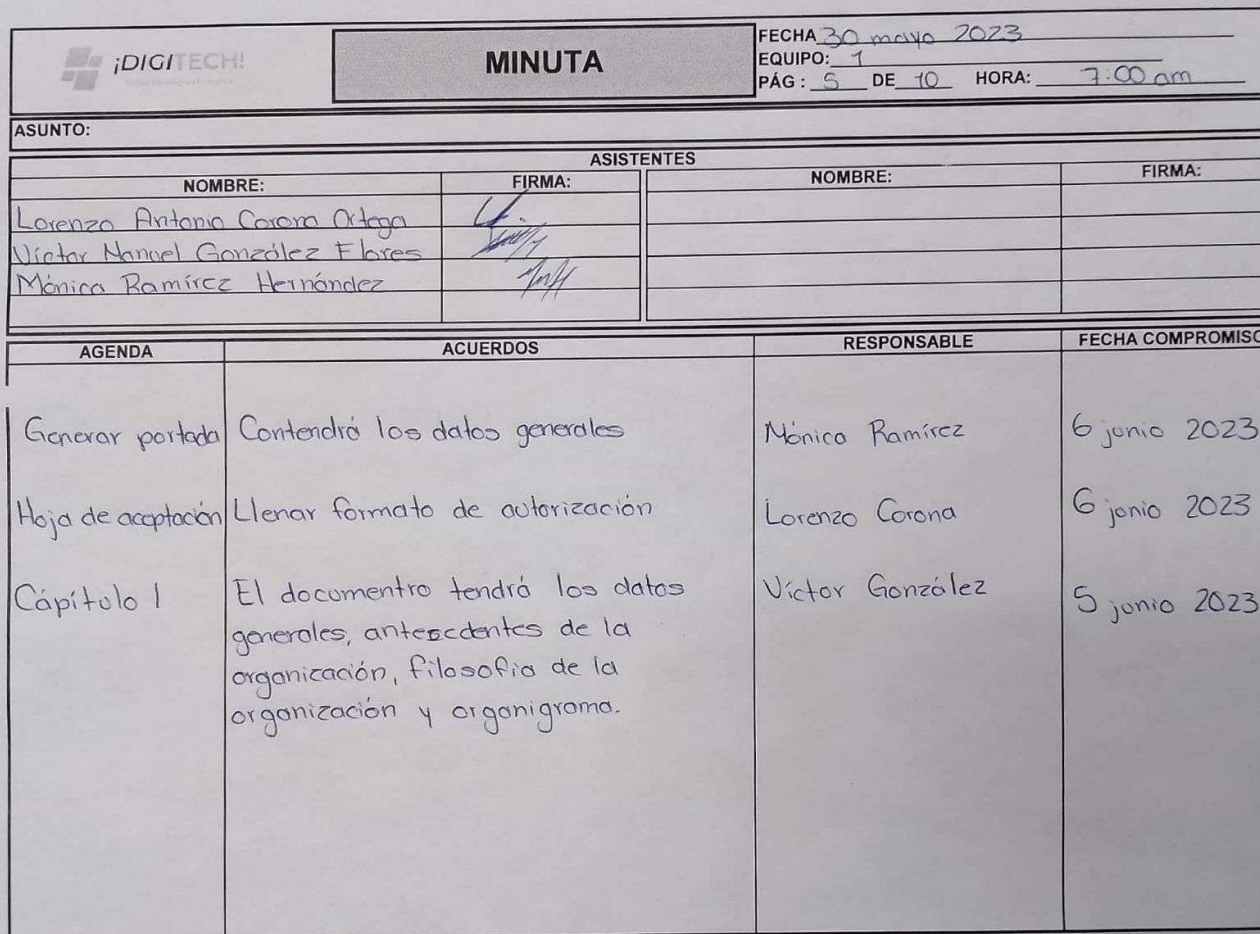 ¡DIGITECH!
MINUTA
FECHA 30 mayo 2023
EQUIPO: 1
PÁG : 5 DE 10 HORA: 7:00 am
ASUNTO:
ASISTENTES
NOMBRE: FIRMA: NOMBRE: FIRMA:
Lorenzo Antonio Corona Ortega
Víctor Manuel González Flores
Mónica Ramírez Hernández
AGENDA ACUERDOS RESPONSABLE FECHA COMPROMISO
Generar portada Contendrá los datos generales Mónica Ramírez 6 junio 2023
Hoja de aceptación Llenar formato de autorización Lorenzo Corona 6 junio 2023
Cápítulo 1 El documentro tendrá los datos Víctor González 5 junio 2023
generales, antescedentes de la
organización, filosofia de la
organización y organigrama.